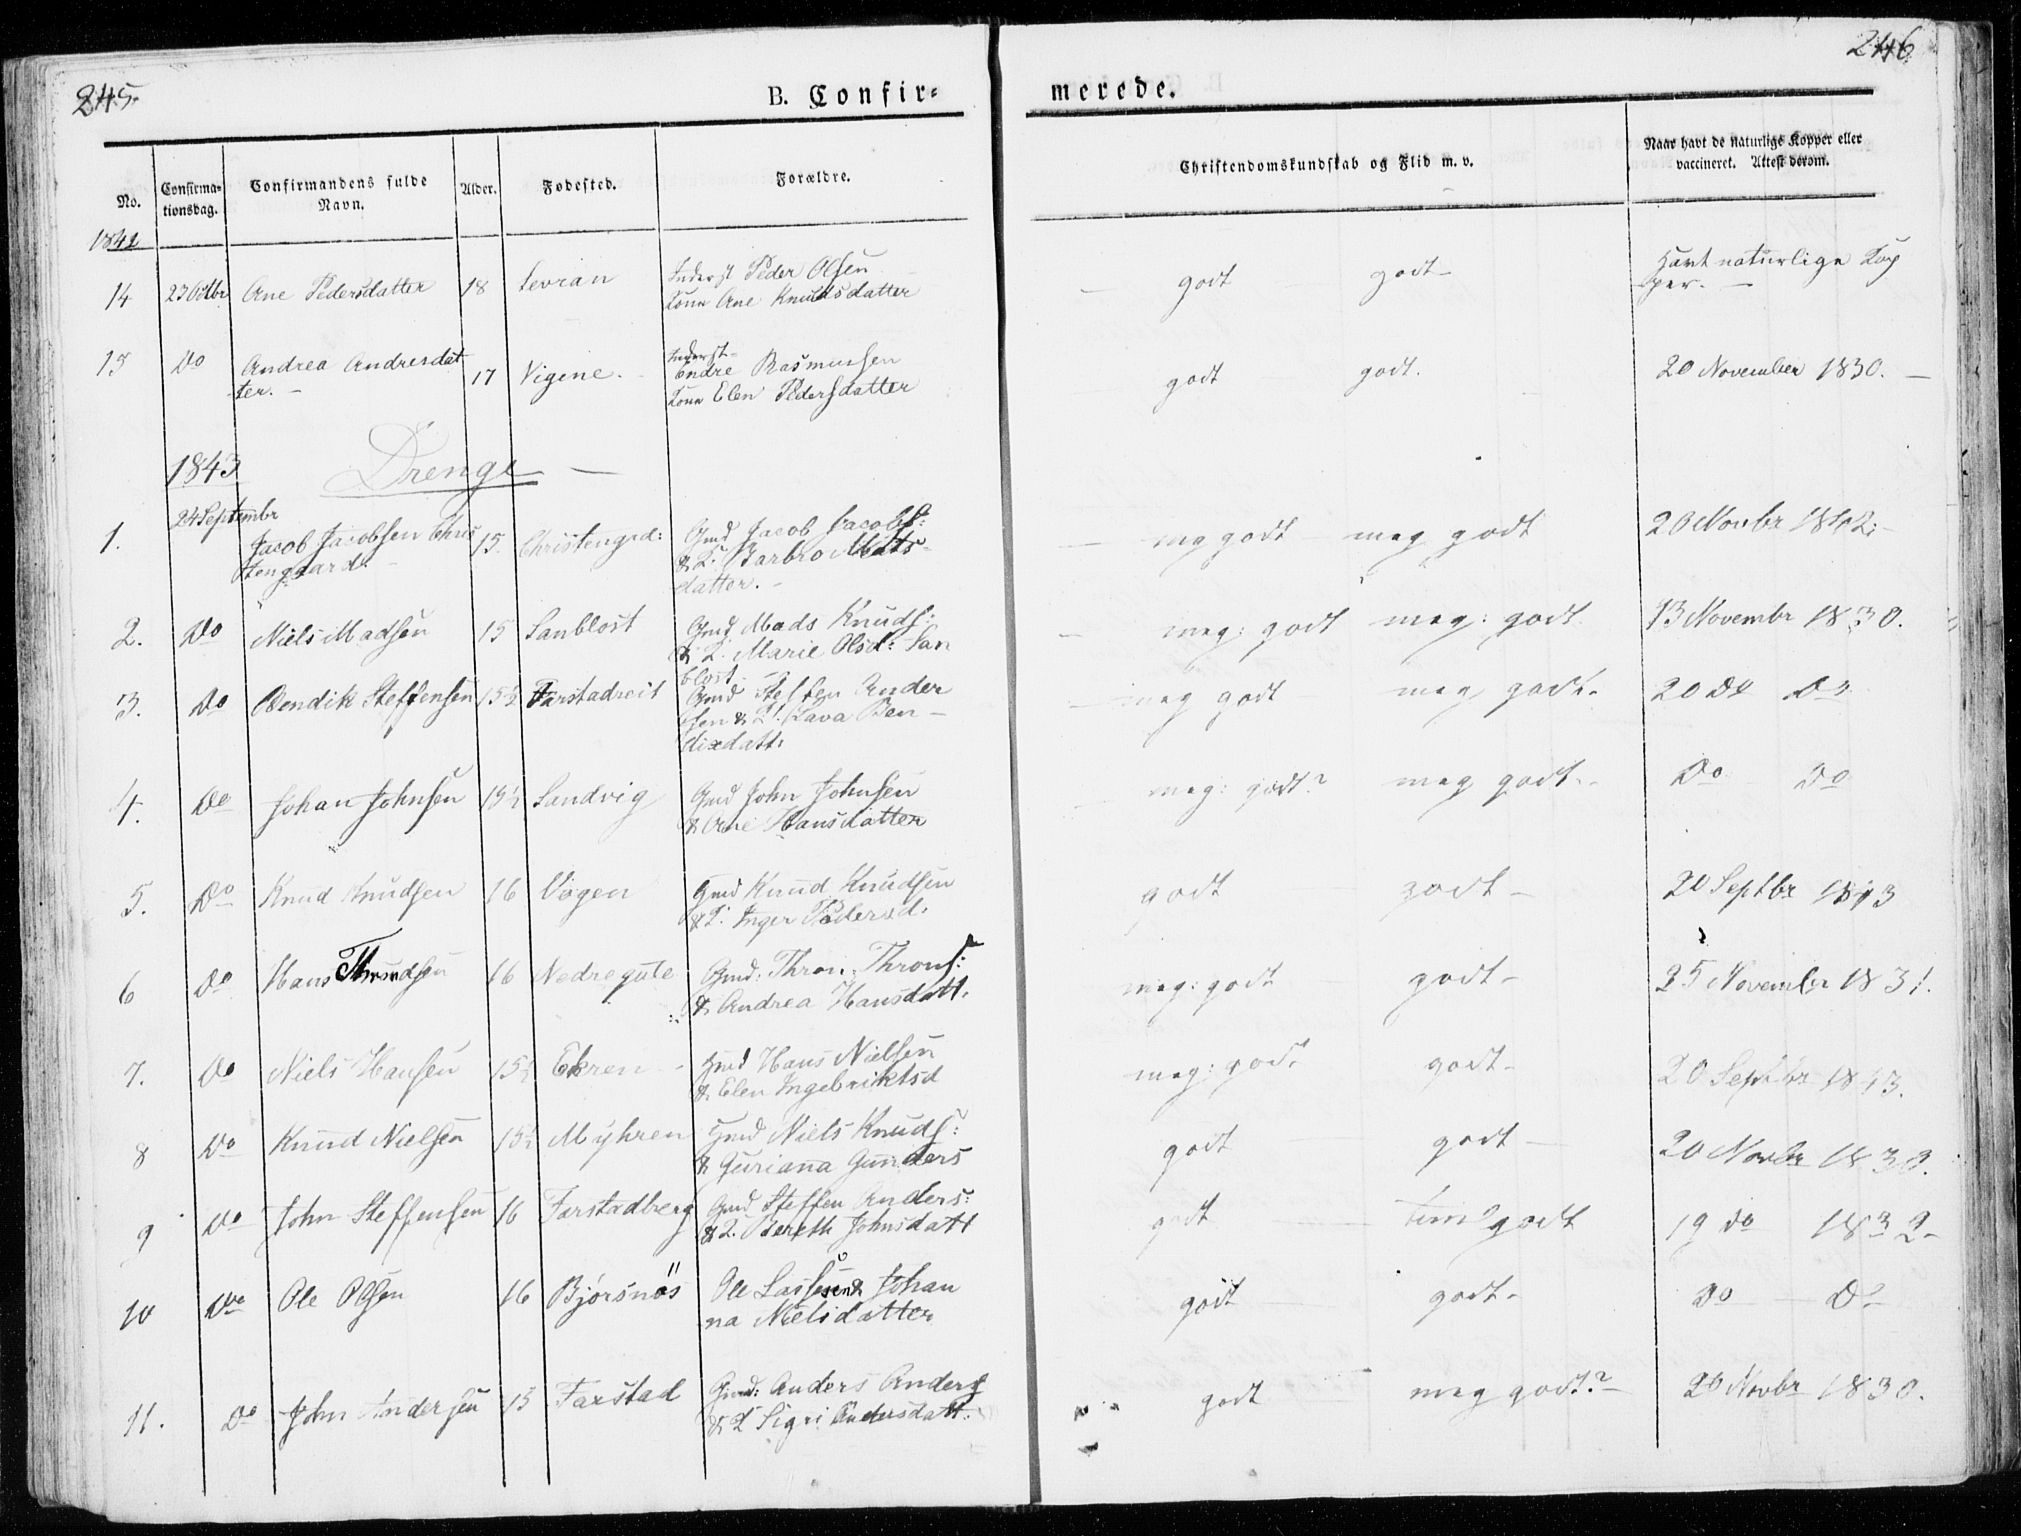 245.
246
B. Confir-
merede.
No.
Confirma-
tionsdag.
Confirmandens fulde
Navn.
Alder.
Fødested.
Forældre.
Christendomskundskab og Flid m. v.
Naar havt de naturlige Kopper eller
vaccineret. Attest derom.
1842
14 23 Octbr Ane Pedersdatter 18 Sevran Inderst Peder Olsen godt godt - Havt naturlige Kop
Kone Ane Knudsdatter per. -
15 Do Andrea Andresdat 17 Vigene. Inderst - godt godt. 20 November 1830. -
ter. - Endre Rasmussen
Kone Elen Pedersdatter
1843 Drenge -
24 Septembr
1. Jacob Jacobsen Chris 15. Christengrd: Gmd Jacob Jacobs: - meg godt meg godt 20 Novbr
tengaard. - & K. Barbro Mats-
datter. -
2. Do Niels Madsen 15 Sanblost Gmd Mads Knuds: - meg: godt meg: godt 13 Novembr 1830.
& K. Marie Olsd: San
blost.
3. Do Bendik Steffensen 15½ Farstadreit Gmd Steffen Ander - meg godt meg godt. 20 Do Do
sen & K. Ben-
dixdatt:
4. Do Johan Johnsen 15½ Sandvig Gmd John Johnsen - meg: godt? meg godt - Do Do
& Ane Hansdatter
5. Do Knud Knudsen 16 Vogen Gmd Knud Knudsen godt godt - 20 Septbr 1843
& K. Inger Pedersd.
6 Do Hans Thrundsen 16 Nedregule Gmd: Thron Throns: meg: godt godt - 25 November 1831.
& Andrea Hansdatt.
7. Do Niels Hansen 15½ Ekren - Hmd Hans Nielsen meg: godt godt - 20 Septbr 1843.
& Elen Ingebriktsd
8 Do Knud Nielsen 15½ Myhren Hmd Niels Knuds: godt godt - 20 Novbr 1830.
& Guriana Gunders
9 Do John Steffensen 16 Farstadberg Gmd Steffen Anders: godt - godt 19 Do 1832 -
& K. Bereth Johnsdatt
10 Do Ole Olsen 16 Bjørsnös Ole Lassesen & Johan godt godt - Do - Do
na Nielsdatter
11. Do John Andersen 15 Farstad Gmd: Anders Anders godt meg godt? - 20 Novbr 1830.
& K Sigri Andersdatt: